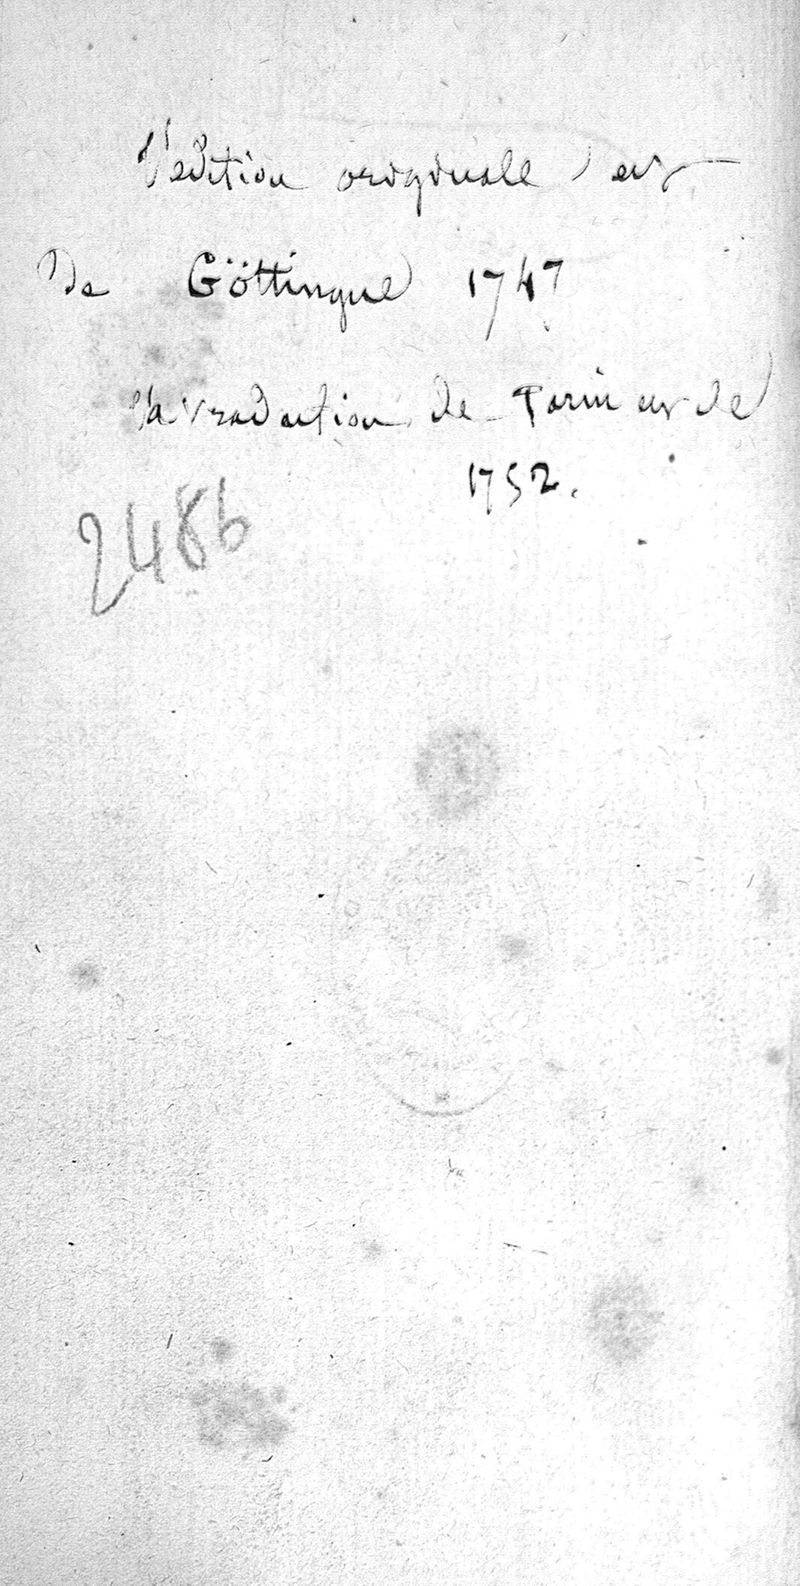 l'edition originale est
de Göttingue 1747
la traduction de Tarin est de
1752.
2486